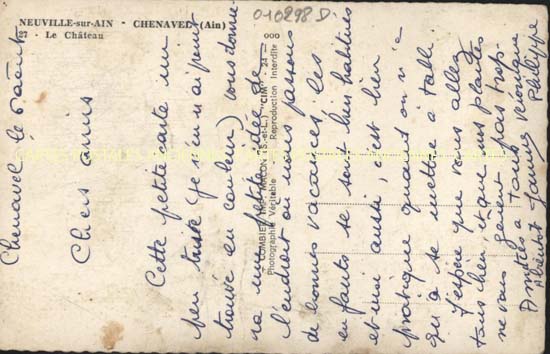 NEUVILLE-sur-AIN - CHENAVEL (Ain)
27 - Le Château
010898 D.
COMBIER IMP. MACON (S.-et-L.) "CIM"
Photographie Véritable - Reproduction Interdite
Chenavel le 6 août
Chers amis
Cette petite carte un
peu triste (je n'en ai point
trouvé en couleur) vous donne-
ra une petite idée de
l'endroit où nous passons
de bonnes vacances les
enfants se sont bien habitués
et moi aussi, c'est bien
pratique quand on n'a
qu'a se mettre à table.
J'espère que vous allez
tous bien et que nos plantes
ne vous gênent pas trop.
Amitiés à tous
A bientôt
Philippe